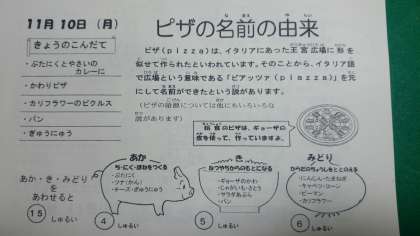 11月10日（月）
ピザの名前の由来
きょうのこんだて
・ぶたにくとやさいの
カレーに
・かわりピザ
・カリフラワーのピクルス
・パン
・ぎゅうにゅう
ピザ(pizza)は、イタリアにあった王宮広場に形を
似せて作られたといわれています。そのことから、イタリア語
で広場という意味である「ピアッツァ(piazza)」を元
にして名前ができたという説があります。
(ピザの語源については他にもいろいろな
説があります)
給食のピザは、ギョーザの
皮を使って、作っていますよ。
あか・き・みどり
をあわせると
15 しゅるい
あか
ち・にく・ほねをつくる
・ぶたにく
・ツナ(かん)
・チーズ・ぎゅうにゅう
4 しゅるい
き
ねつやちからのもとになる
・ギョーザのかわ
・じゃがいも・さとう
・サラダあぶら
・パン
5 しゅるい
みどり
からだのちょうしをととのえる
・にんじん・たまねぎ
・キャベツ・コーン
・ピーマン
・カリフラワー
6 しゅるい